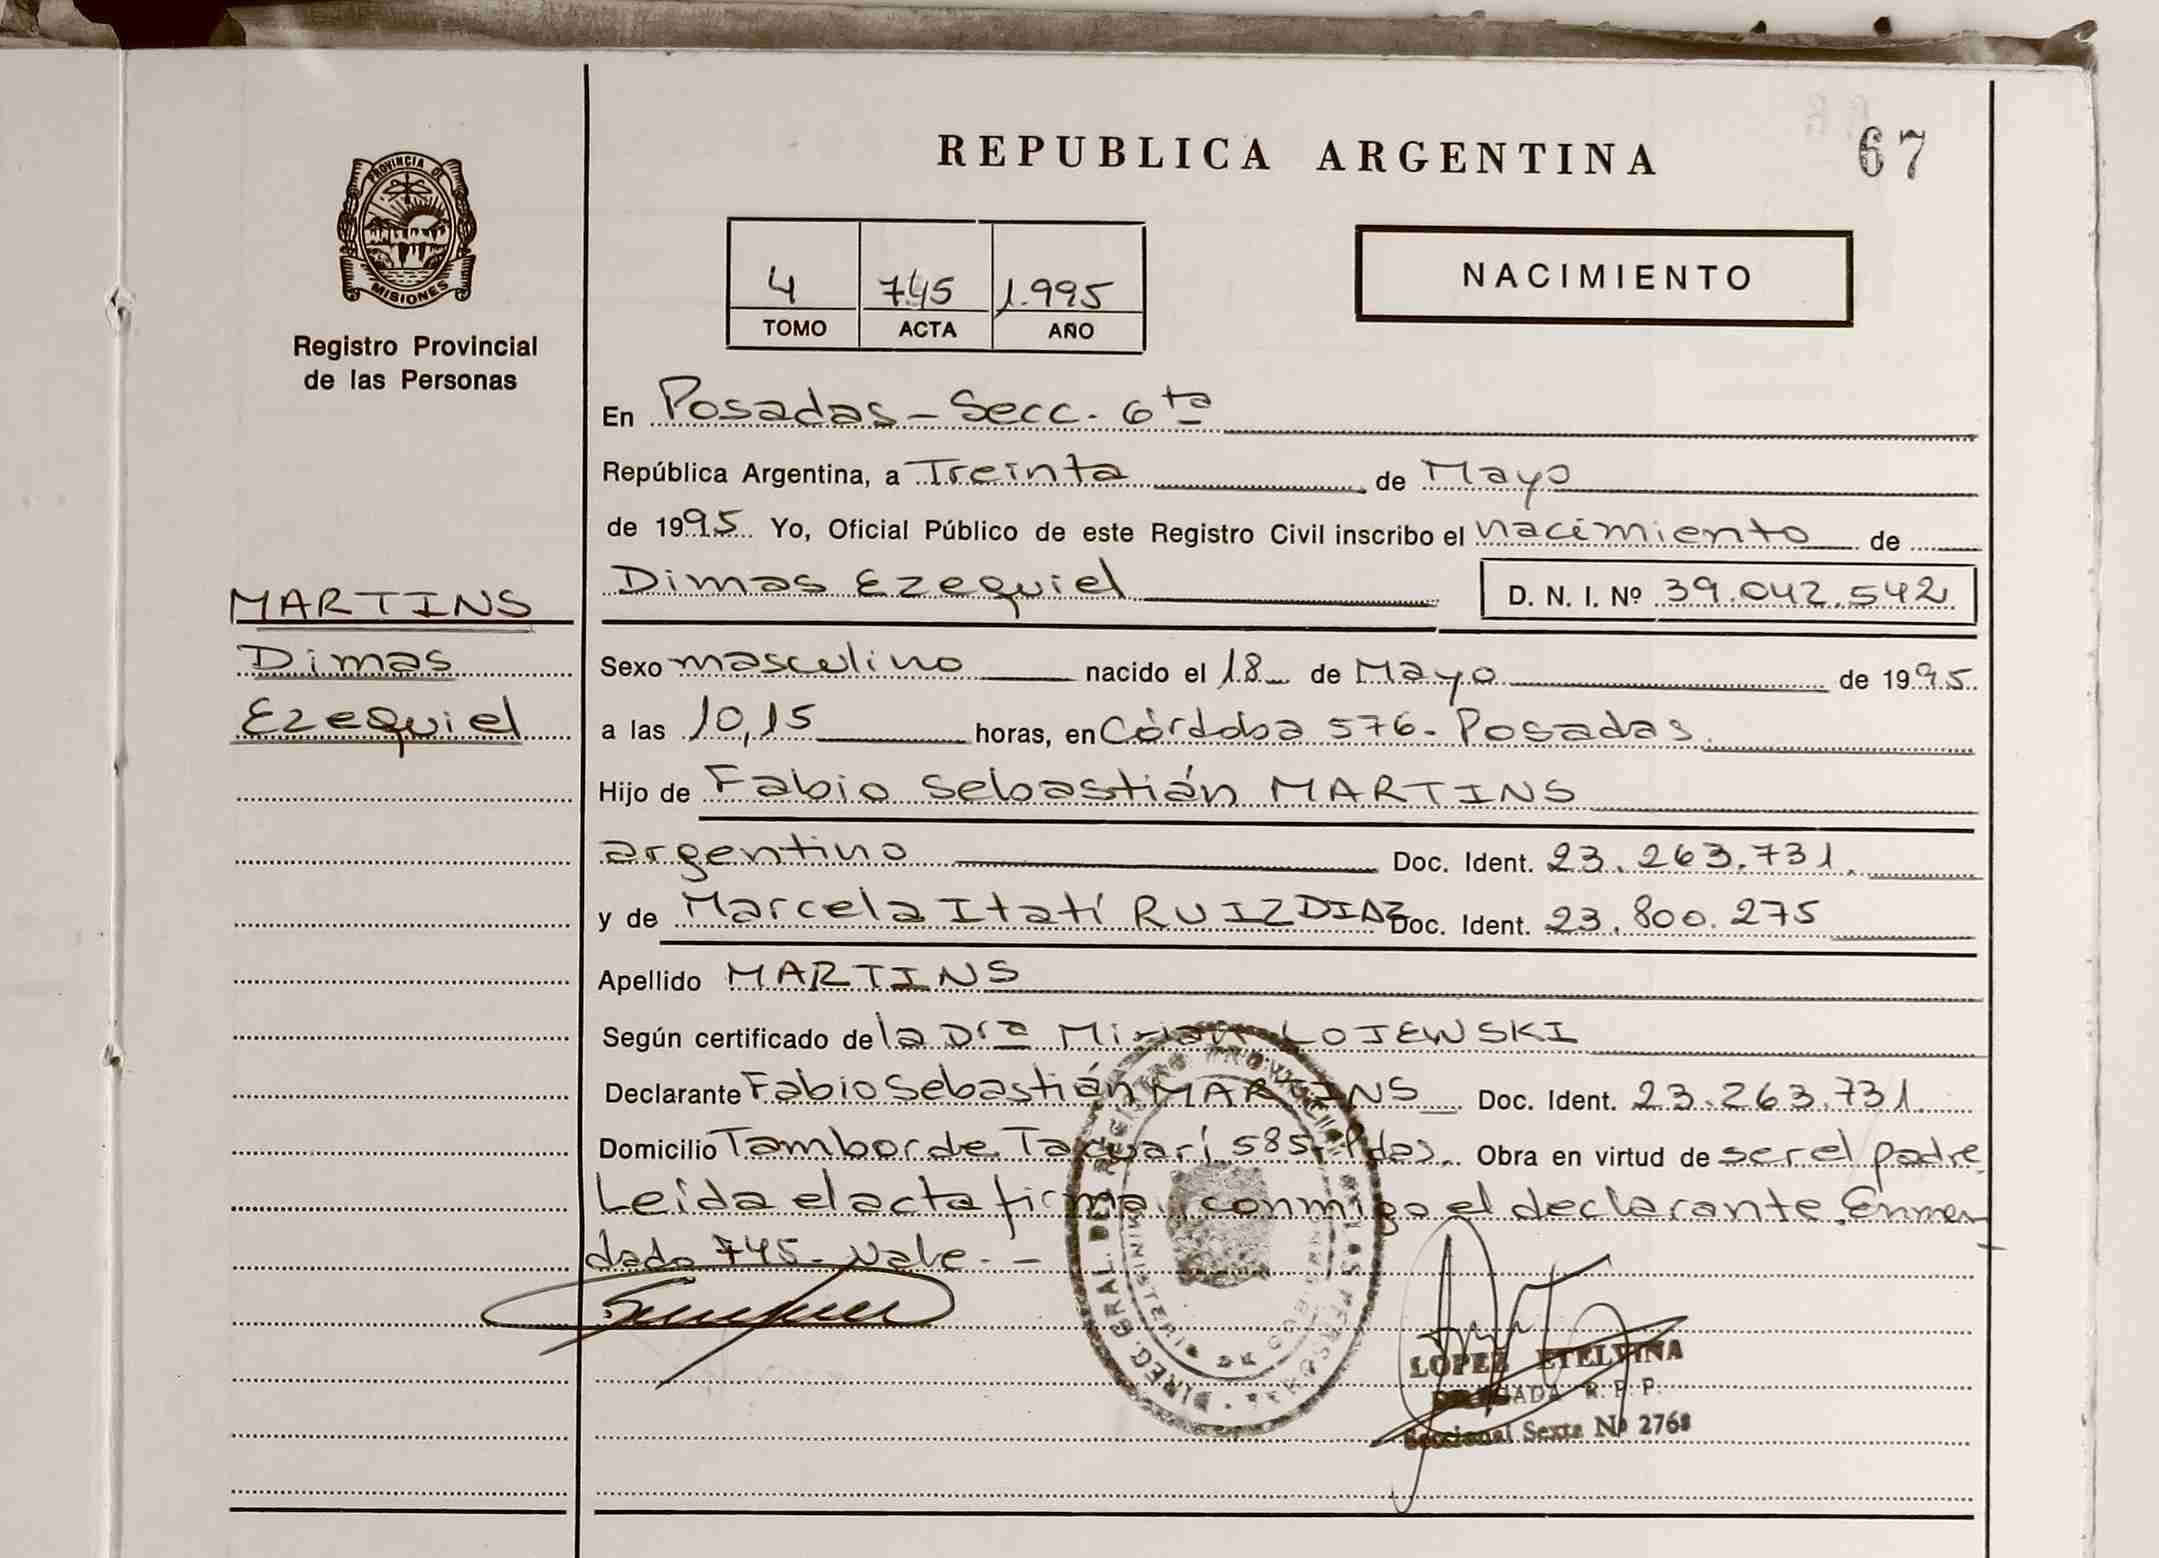 REPUBLICA ARGENTINA
67
PROVINCIA DE
MISIONES
Registro Provincial
de las Personas
4 745 1.995
TOMO ACTA AÑO
NACIMIENTO
En Posadas - Secc. 6ta
República Argentina, a Treinta de Mayo
de 1995 Yo, Oficial Público de este Registro Civil inscribo el nacimiento de
MARTINS
Dimas
Ezequiel
Dimas Ezequiel D. N. I. Nº 39.042.542
Sexo masculino nacido el 18 de Mayo de 1995
a las 10,15 horas, en Córdoba 576 - Posadas
Hijo de Fabio Sebastián MARTINS
argentino Doc. Ident. 23.263.731.
y de Marcela Itatí RUIZ DIAZ Doc. Ident. 23.800.275
Apellido MARTINS
Según certificado de la Dra Mirian LOJEWSKI
Declarante Fabio Sebastián MARTINS Doc. Ident. 23.263.731.
Domicilio Tambor de Tacuarí 585 - Pdas. Obra en virtud de ser el padre
Leída el acta firma conmigo el declarante. Enmen
dado 745 - Vale. -
DIREC. GRAL. DEL REGISTRO PROVINCIAL DE LAS PERSONAS
LOPEZ ETELVINA
DELEGADA R. P. P.
Seccional Sexta Nº 2768